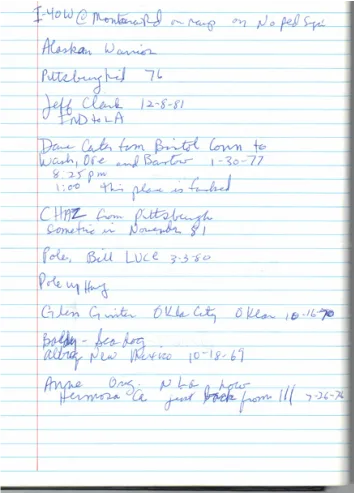 I-40W @ Montara Rd on ramp on No ped Sign
Alaskan Warrior
Pittsburgh Kid 76
Jeff Clark 12-8-81
IND to LA
Dave Cates from Bristol Conn to
Wash, Ore and Barstow 1-30-77
8:25 pm
1:00 this place is fucked
CHAZ from Pittsburgh
sometime in November 81
Pole, Bill LUCE 3-3-80
Pole up Hwy
Glen Ginter Okla City Okla 10-16-70
Baldy - Sea dog
Albuq New Mexico 10-18-69
Anne Orig. N now
Hermosa Ca just back from Ill 7-26-76